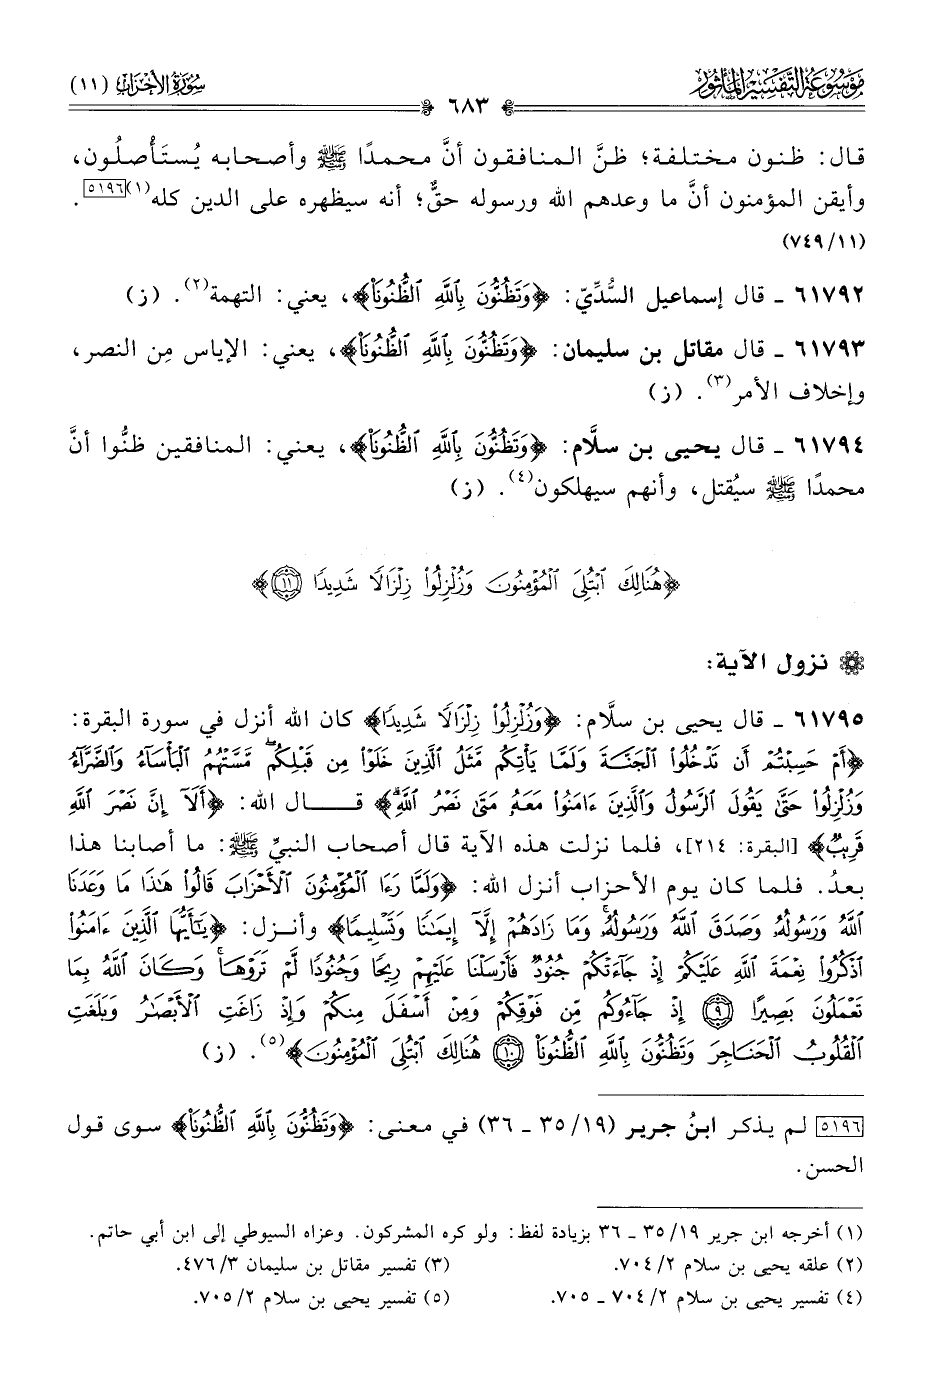 موسوعة التفسير المأثور
سورة الأحزاب (١١)
٦٨٣
قال: ظنون مختلفة؛ ظنَّ المنافقون أنَّ محمدًا ﷺ وأصحابه يُستَأْصلُون،
وأيقن المؤمنون أنَّ ما وعدهم الله ورسوله حقٌّ؛ أنه سيظهره على الدين كله(١)[٥١٩٦].
(١١/ ٧٤٩)
٦١٧٩٢ ـ قال إسماعيل السُّدِّيّ: ﴿وَتَظُنُّونَ بِٱللَّهِ ٱلظُّنُونَا۠﴾، يعني: التهمة(٢). (ز)
٦١٧٩٣ ـ قال مقاتل بن سليمان: ﴿وَتَظُنُّونَ بِٱللَّهِ ٱلظُّنُونَا۠﴾، يعني: الإياس مِن النصر،
وإخلاف الأمر(٣). (ز)
٦١٧٩٤ ـ قال يحيى بن سلَّام: ﴿وَتَظُنُّونَ بِٱللَّهِ ٱلظُّنُونَا۠﴾، يعني: المنافقين ظنُّوا أنَّ
محمدًا ﷺ سيُقتل، وأنهم سيهلكون(٤). (ز)
﴿هُنَالِكَ ٱبْتُلِىَ ٱلْمُؤْمِنُونَ وَزُلْزِلُوا۟ زِلْزَالًا شَدِيدًا ١١﴾
نزول الآية:
٦١٧٩٥ ـ قال يحيى بن سلَّام: ﴿وَزُلْزِلُوا۟ زِلْزَالًا شَدِيدًا﴾ كان الله أنزل في سورة البقرة:
﴿أَمْ حَسِبْتُمْ أَن تَدْخُلُوا۟ ٱلْجَنَّةَ وَلَمَّا يَأْتِكُم مَّثَلُ ٱلَّذِينَ خَلَوْا۟ مِن قَبْلِكُم ۖ مَّسَّتْهُمُ ٱلْبَأْسَآءُ وَٱلضَّرَّآءُ
وَزُلْزِلُوا۟ حَتَّىٰ يَقُولَ ٱلرَّسُولُ وَٱلَّذِينَ ءَامَنُوا۟ مَعَهُۥ مَتَىٰ نَصْرُ ٱللَّهِ ۗ﴾ قال الله: ﴿أَلَآ إِنَّ نَصْرَ ٱللَّهِ
قَرِيبٌ﴾ [البقرة: ٢١٤]، فلما نزلت هذه الآية قال أصحاب النبيِّ ﷺ: ما أصابنا هذا
بعدُ. فلما كان يوم الأحزاب أنزل الله: ﴿وَلَمَّا رَءَا ٱلْمُؤْمِنُونَ ٱلْأَحْزَابَ قَالُوا۟ هَٰذَا مَا وَعَدَنَا
ٱللَّهُ وَرَسُولُهُۥ وَصَدَقَ ٱللَّهُ وَرَسُولُهُۥ ۚ وَمَا زَادَهُمْ إِلَّآ إِيمَٰنًا وَتَسْلِيمًا﴾ وأنزل: ﴿يَٰٓأَيُّهَا ٱلَّذِينَ ءَامَنُوا۟
ٱذْكُرُوا۟ نِعْمَةَ ٱللَّهِ عَلَيْكُمْ إِذْ جَآءَتْكُمْ جُنُودٌ فَأَرْسَلْنَا عَلَيْهِمْ رِيحًا وَجُنُودًا لَّمْ تَرَوْهَا ۚ وَكَانَ ٱللَّهُ بِمَا
تَعْمَلُونَ بَصِيرًا ٩ إِذْ جَآءُوكُم مِّن فَوْقِكُمْ وَمِنْ أَسْفَلَ مِنكُمْ وَإِذْ زَاغَتِ ٱلْأَبْصَٰرُ وَبَلَغَتِ
ٱلْقُلُوبُ ٱلْحَنَاجِرَ وَتَظُنُّونَ بِٱللَّهِ ٱلظُّنُونَا۠ ١٠ هُنَالِكَ ٱبْتُلِىَ ٱلْمُؤْمِنُونَ﴾(٥). (ز)
[٥١٩٦] لم يذكر ابنُ جرير (١٩/ ٣٥ ـ ٣٦) في معنى: ﴿وَتَظُنُّونَ بِٱللَّهِ ٱلظُّنُونَا۠﴾ سوى قول
الحسن.
(١) أخرجه ابن جرير ١٩/ ٣٥ ـ ٣٦ بزيادة لفظ: ولو كره المشركون. وعزاه السيوطي إلى ابن أبي حاتم.
(٢) علقه يحيى بن سلام ٢/ ٧٠٤. (٣) تفسير مقاتل بن سليمان ٣/ ٤٧٦.
(٤) تفسير يحيى بن سلام ٢/ ٧٠٤ ـ ٧٠٥. (٥) تفسير يحيى بن سلام ٢/ ٧٠٥.